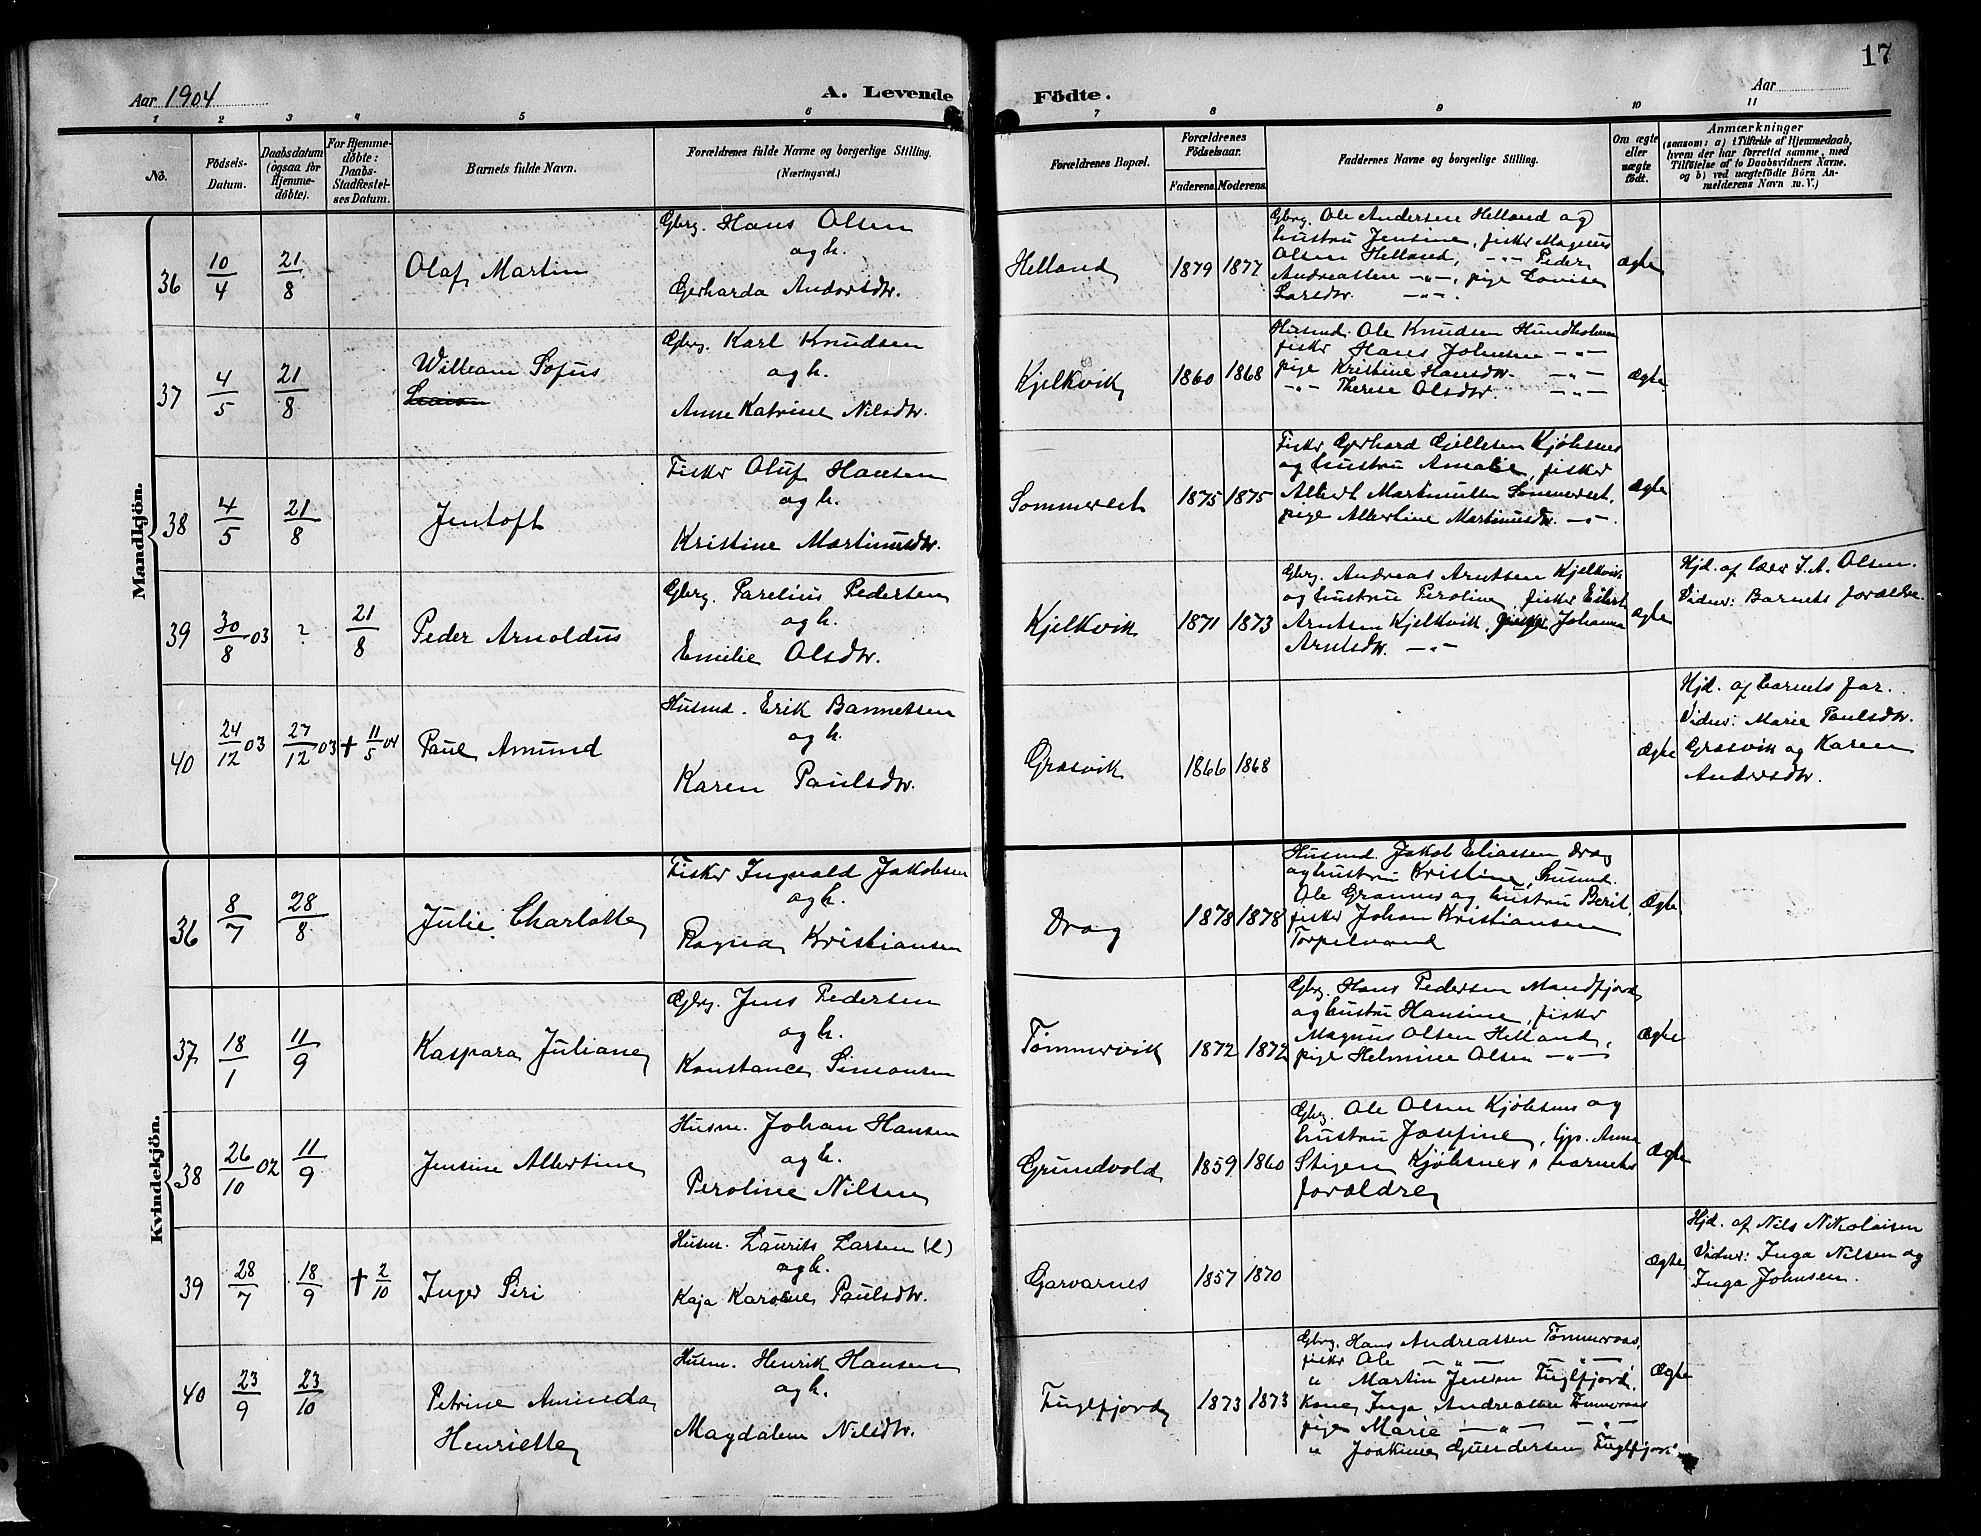 17
Aar 1904
A. Levende Födte.
Aar
1 2 3 4 5 6 7 8 9 10 11
No.
Födsels-
Datum.
Daabsdatum
(ogsaa for
Hjemme-
døbte).
For Hjemme-
døbte:
Daabs-
Stadfæstel-
ses Datum.
Barnets fulde Navn.
Forældrenes fulde Navne og borgerlige Stilling.
(Næringsvei.)
Forældrenes Bopæl.
Forældrenes
Födselsaar.
Faderens.
Moderens.
Faddernes Navne og borgerlige Stilling.
Om ægte
eller
uægte
født.
Anmærkninger
(saasom: a) i Tilfælde af Hjemmedaab,
hvem der har forrettet samme, med
Tilføielse af to Daabsvidners Navne.
og b) ved uægtefödte Börn An-
melderens Navn m. V.)
Mandkjön.
36
10/4
21/8
Olaf Martin
Gbrg. Hans Olsen
og h.
Gerharda Andorsdtr.
Helland
1879
1877
Gbrg. Ole Andersen Helland og
hustru Jensine, fisker Magnus
Olsen Helland, —"— Peder
Andreassen —"—, pige Lovise
Larsdtr. —"—.
Ægte
37
4/5
21/8
William Sofus
Gbrg. Karl Knudsen
og h.
Anne Katrine Nilsdtr.
Kjelkvik
1860
1868
Husmd. Ole Knudsen Hundholmen
fisker Hans Johnsen —"—
pige Kristine Hansdtr. —"—
—"— Therese Olsdtr. —"—
Ægte
38
4/5
21/8
Jentoft
Fisker Oluf Hansen
og h.
Kristine Martinusdtr.
Sommerset
1875
1875
Fisker Gerhard Gjellesen Kjøbsnes
og hustru Amalie, fisker
Albert Martinussen Sommerset,
pige Albertine Martinusdtr. —"—.
Ægte
39
30/8 03
?
21/8
Peder Arnoldus
Gbrg. Parelius Pedersen
og h.
Emilie Olsdtr.
Kjelkvik
1871
1873
Gbrg. Andreas Arntsen Kjelkvik
og hustru Peroline, fisker Eilert
Arntsen Kjelkvik, pige Johanna
Arntsdtr. —"—
Ægte
Hjd. af lærer J. A. Olsen.
Vidner: Barnets forældre.
40
24/12 03
27/12 03
+ 11/5 04
Paul Amund
Husmd. Erik Bannetsen
og h.
Karen Paulsdtr.
Græsvik
1866
1868
Ægte
Hjd. af barnets far.
Vidner: Marie Paulsdtr.
Græsvik og Karen
Andersdtr.
Kvindekjön.
36
8/7
28/8
Julie Charlotte
Fisker Ingvald Jakobsen
og h.
Ragna Kristiansen
Drag
1878
1878
Husmd. Jakob Eliassen Drag
og hustru Kristine, husmd.
Ole Grannes og hustru Berit,
fisker Johan Kristiansen
Torpelvand
Ægte
37
18/1
11/9
Kaspara Juliane
Gbrg. Jens Pedersen
og h.
Konstance Simonsen
Tømmervik
1872
1872
Gbrg. Hans Pedersen Mandfjord
og hustru Hansine, fisker
Magnus Olsen Helland,
pige Helmine Olsen —"—
Ægte
38
26/10 02
11/9
Jensine Albertine
Husm. Johan Hansen
og h.
Peroline Nilsen
Grundvold
1859
1860
Gbrg. Ole Olsen Kjøbsnes og
hustru Josefine, Anna
Stigen Kjøbsnes, barnets
forældre
Ægte
39
28/7
18/9
+ 2/10
Inger Siri
Husm. Laurits Larsen (l)
og h.
Kaja Karoline Paulsdtr.
Garvarnes
1857
1870
Ægte
Hjd. af Nils Nikolaisen
Vidner: Inga Nilsen og
Inga Johnsen.
40
23/9
23/10
Petrine Aminda
Henriette
Husm. Henrik Hansen
og h.
Magdalene Nilsdtr.
Fuglfjord
1873
1873
Gbrg. Hans Andreassen Tømmeraas,
fisker Ole —"— —"—
" Martin Jensen Fuglfjord,
Kone Inga Andreassen Tømmeraas
pige Marie —"— —"—
" Joakime Gundersen Fuglfjord
Ægte